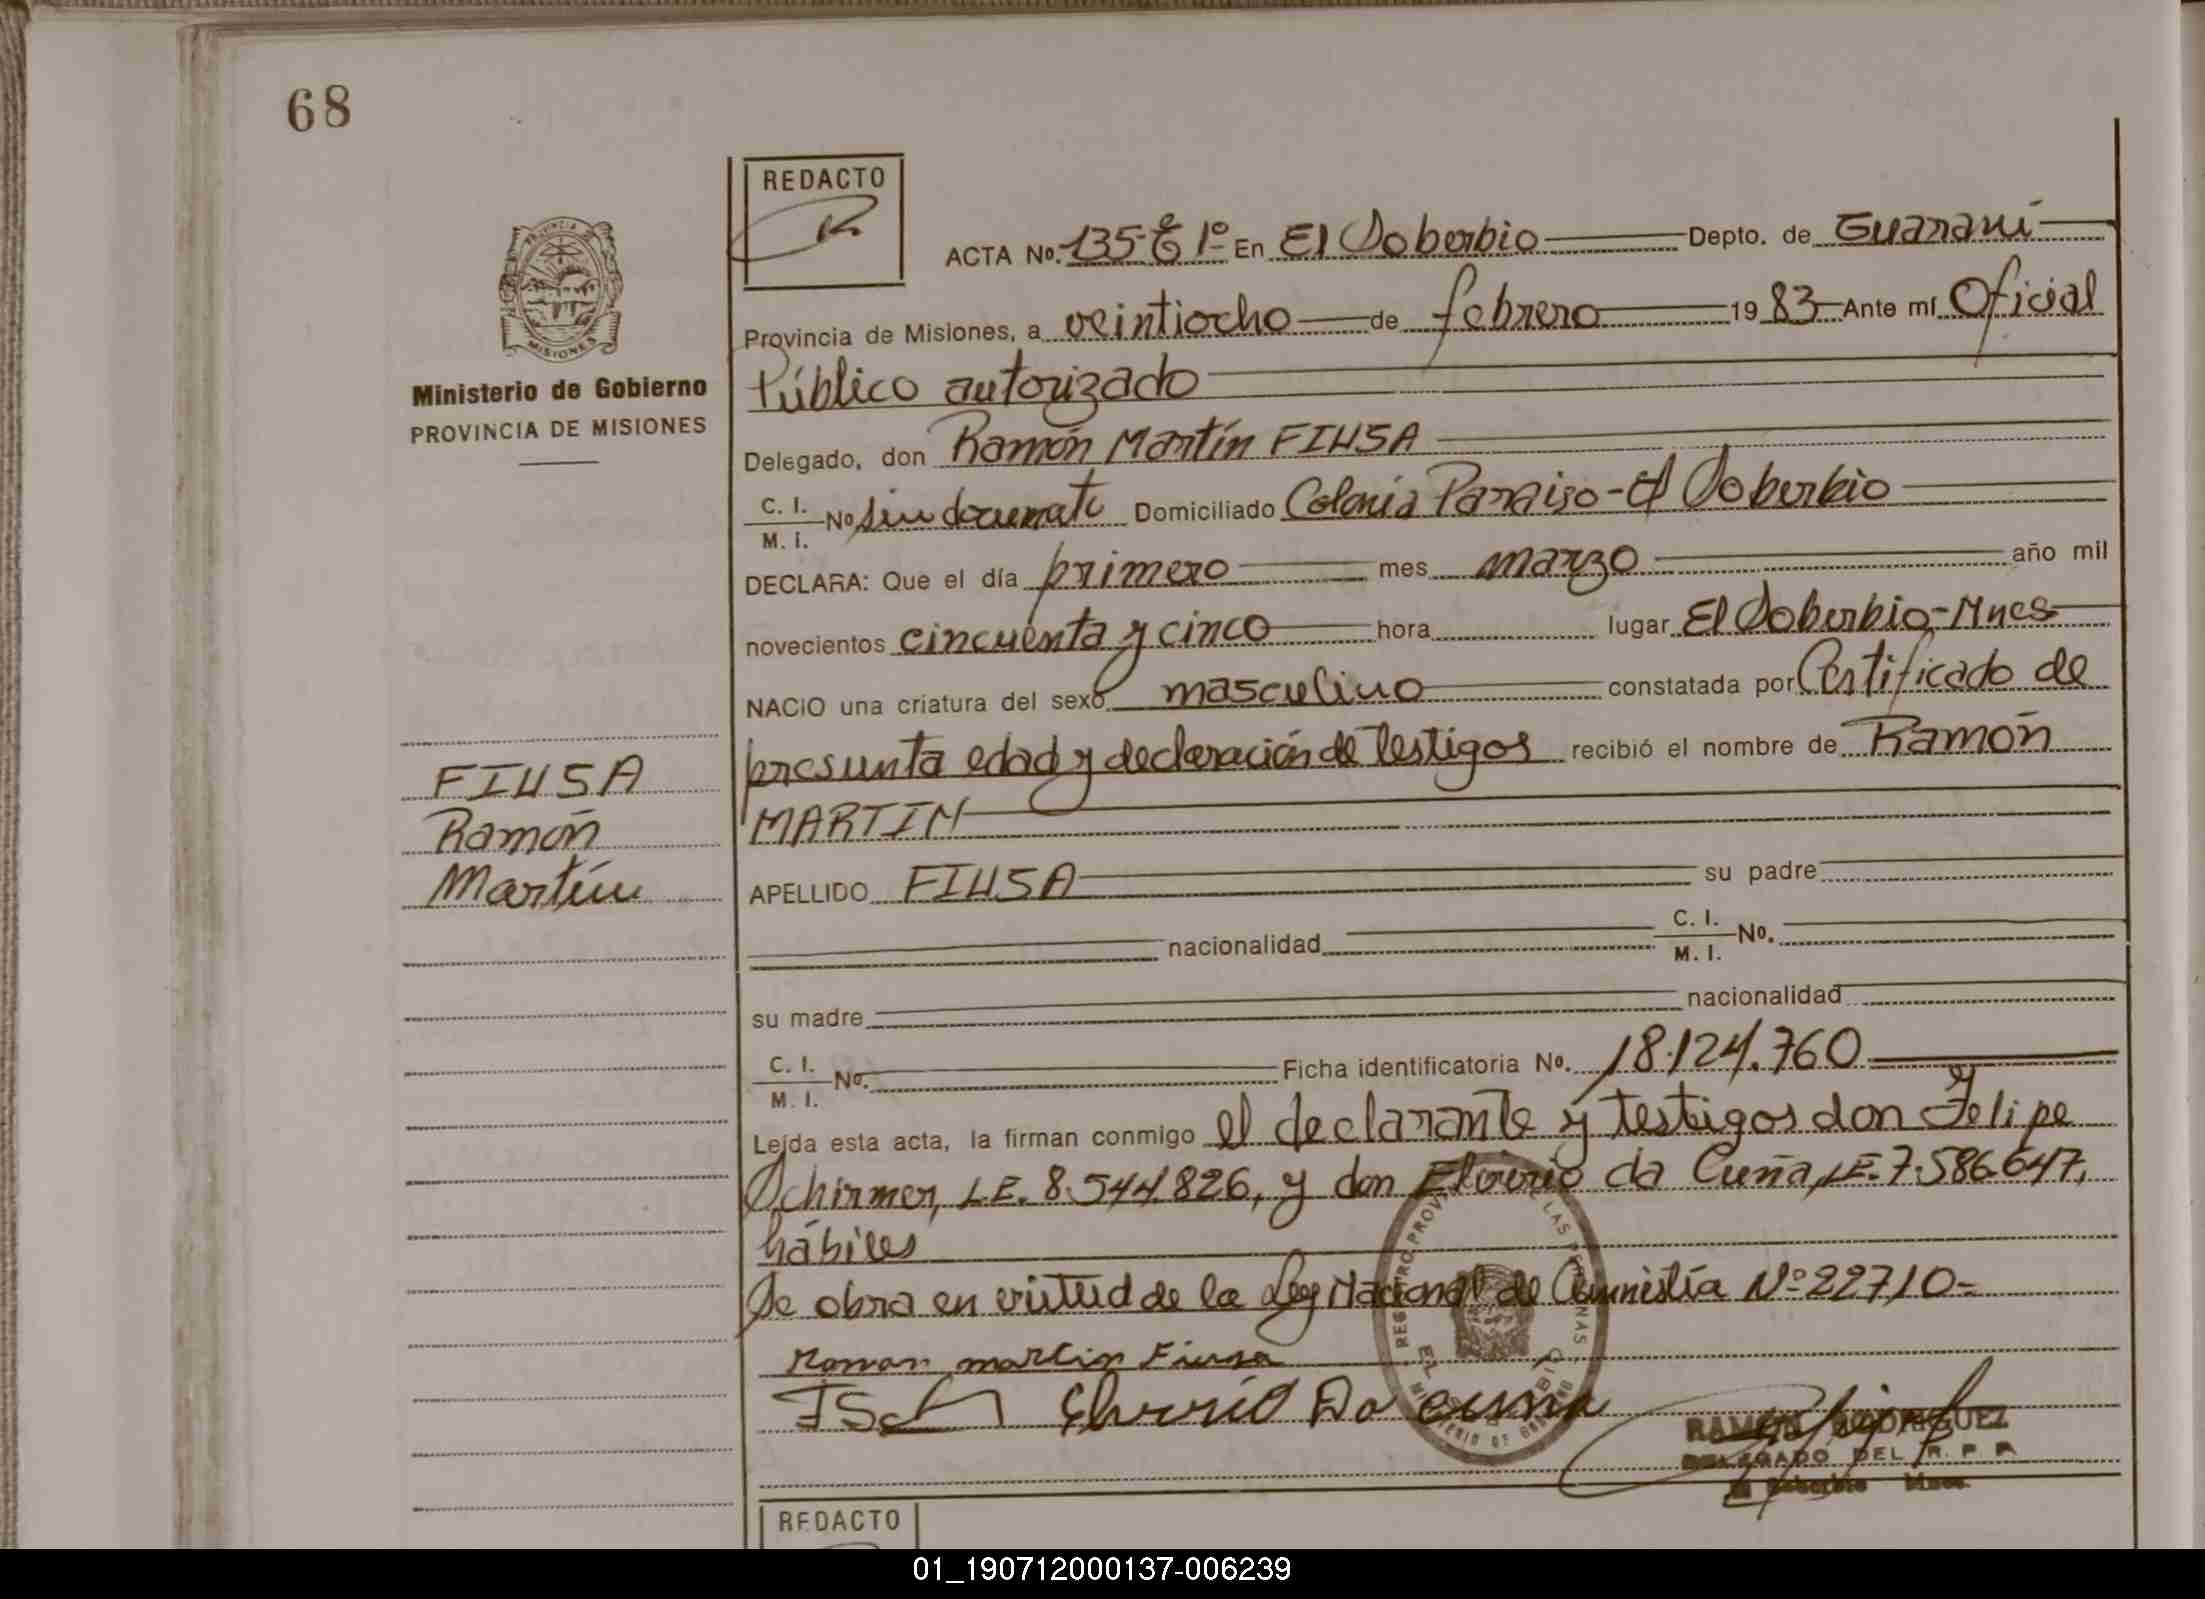 68
REDACTO
ACTA No. 135-Tº 1º En El Soberbio Depto. de Guaraní
Provincia de Misiones, a veintiocho de febrero 1983 Ante mí Oficial
Público autorizado
Delegado, don Ramón Martín FIUSA
C. I.
M. I. No sin documento Domiciliado Colonia Paraiso-El Soberbio
DECLARA: Que el día primero mes marzo año mil
novecientos cincuenta y cinco hora lugar El Soberbio-Mnes
NACIO una criatura del sexo masculino constatada por Certificado de
presunta edad y declaración de testigos recibió el nombre de Ramón
MARTIN
APELLIDO FIUSA su padre
nacionalidad C. I.
M. I. No.
su madre nacionalidad
C. I.
M. I. No. Ficha identificatoria No. 18.124.760
Leída esta acta, la firman conmigo el declarante y testigos don Felipe
Schirmer, L.E. 8.544.826, y don Elvirio da Cuña, L.E. 7.586.647,
hábiles
Se obra en virtud de la Ley Nacional de Amnistía Nº 22710=
Ramon martin Fiusa
Elvirio Da cuna
RAMÓN RODRIGUEZ
DELEGADO DEL R. P. P.
El Soberbio Mnes.
MISIONES
Ministerio de Gobierno
PROVINCIA DE MISIONES
FIUSA
Ramón
Martín
REDACTO
01_190712000137-006239